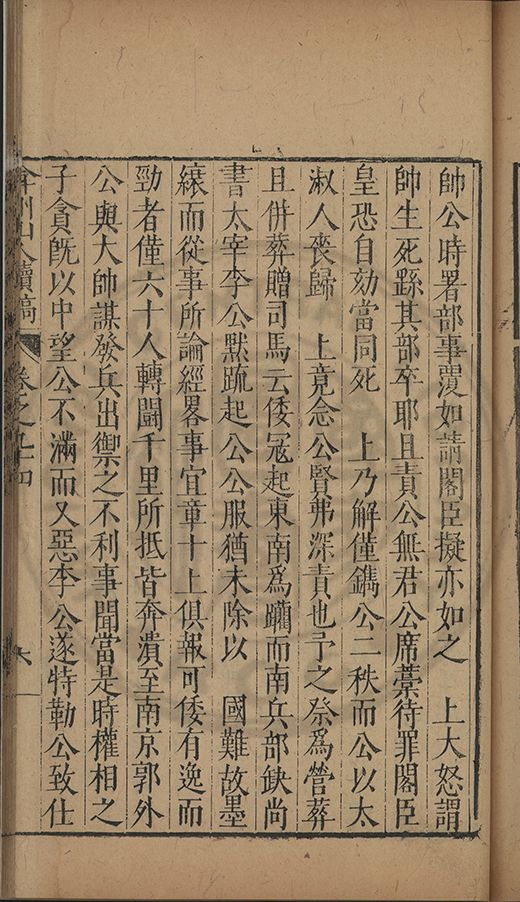 帥公時署部事覆如請閣臣擬亦如之　上大怒謂
帥生死繇其部卒耶且責公無君公席藁待罪閣臣
皇恐自劾當同死　上乃解僅鐫公二秩而公以太
淑人喪歸　上竟念公賢弗深責也予之祭爲營葬
且併葬贈司馬云倭寇起東南爲躪而南兵部缺尚
書太宰李公默疏起公公服猶未除以　國難故墨
縗而從事所論經畧事宜章十上俱報可倭有逸而
勁者僅六十人轉鬬千里所抵皆奔潰至南京郭外
公與大帥謀發兵出禦之不利事聞當是時權相之
子貪既以中望公不滿而又惡李公遂特勒公致仕
弇州山人續稿　卷之九十四　六